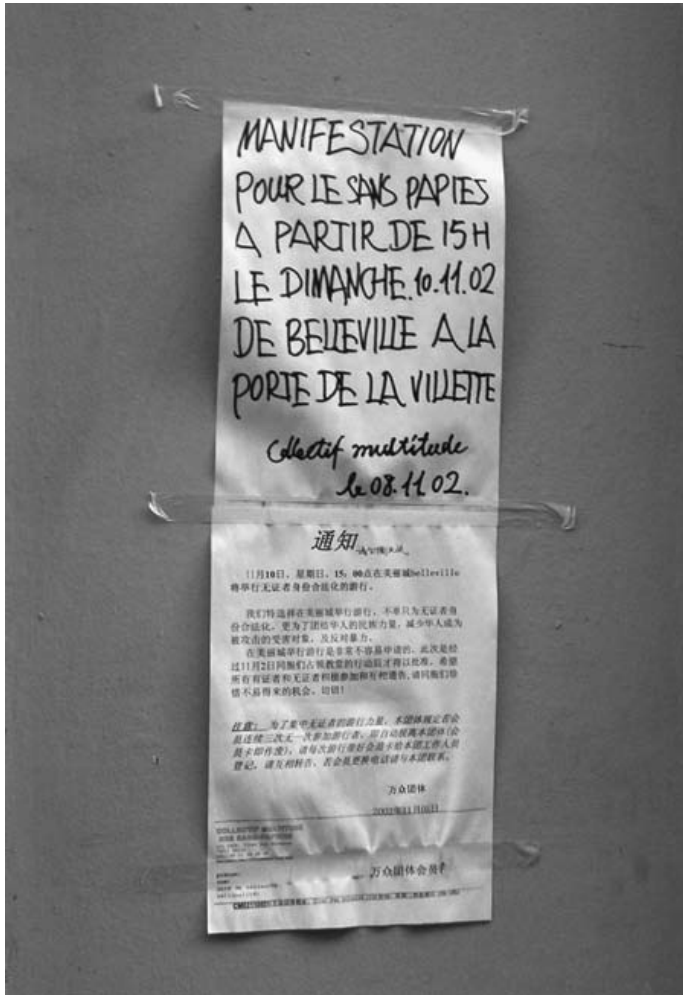 MANIFESTATION
POUR LE SANS PAPIES
A PARTIR DE 15H
LE DIMANCHE.10.11.02
DE BELLEVILLE A LA
PORTE DE LA VILLETTE
Collectif multitude
le 08.11 02.
通知
11月10日，星期日，15：00点在美丽城belleville
将举行无证者身份合法化的游行。
我们特选择在美丽城举行游行，不单只为无证者身
份合法化，更为了团结华人的民族力量，减少华人成为
被攻击的受害对象，及反对暴力。
在美丽城举行游行是非常不容易申请的，此次是经
过11月2日同胞们占领教堂的行动后才得以批准，希望
所有有证者和无证者积极参加和互相通告，请同胞们珍
惜不易得来的机会，切切！
注意： 为了集中无证者的游行力量，本团体规定若会
员连续三次无一次参加游行者，即自动脱离本团体(会
员卡即作废)，请每次游行带好会员卡给本团工作人员
登记。请互相转告，若会员更换电话请与本团联系。
万众团体
2002年11月05日
COLLECTIF MULTITUDE
DES SANS-PAPIERS
万众团体会员